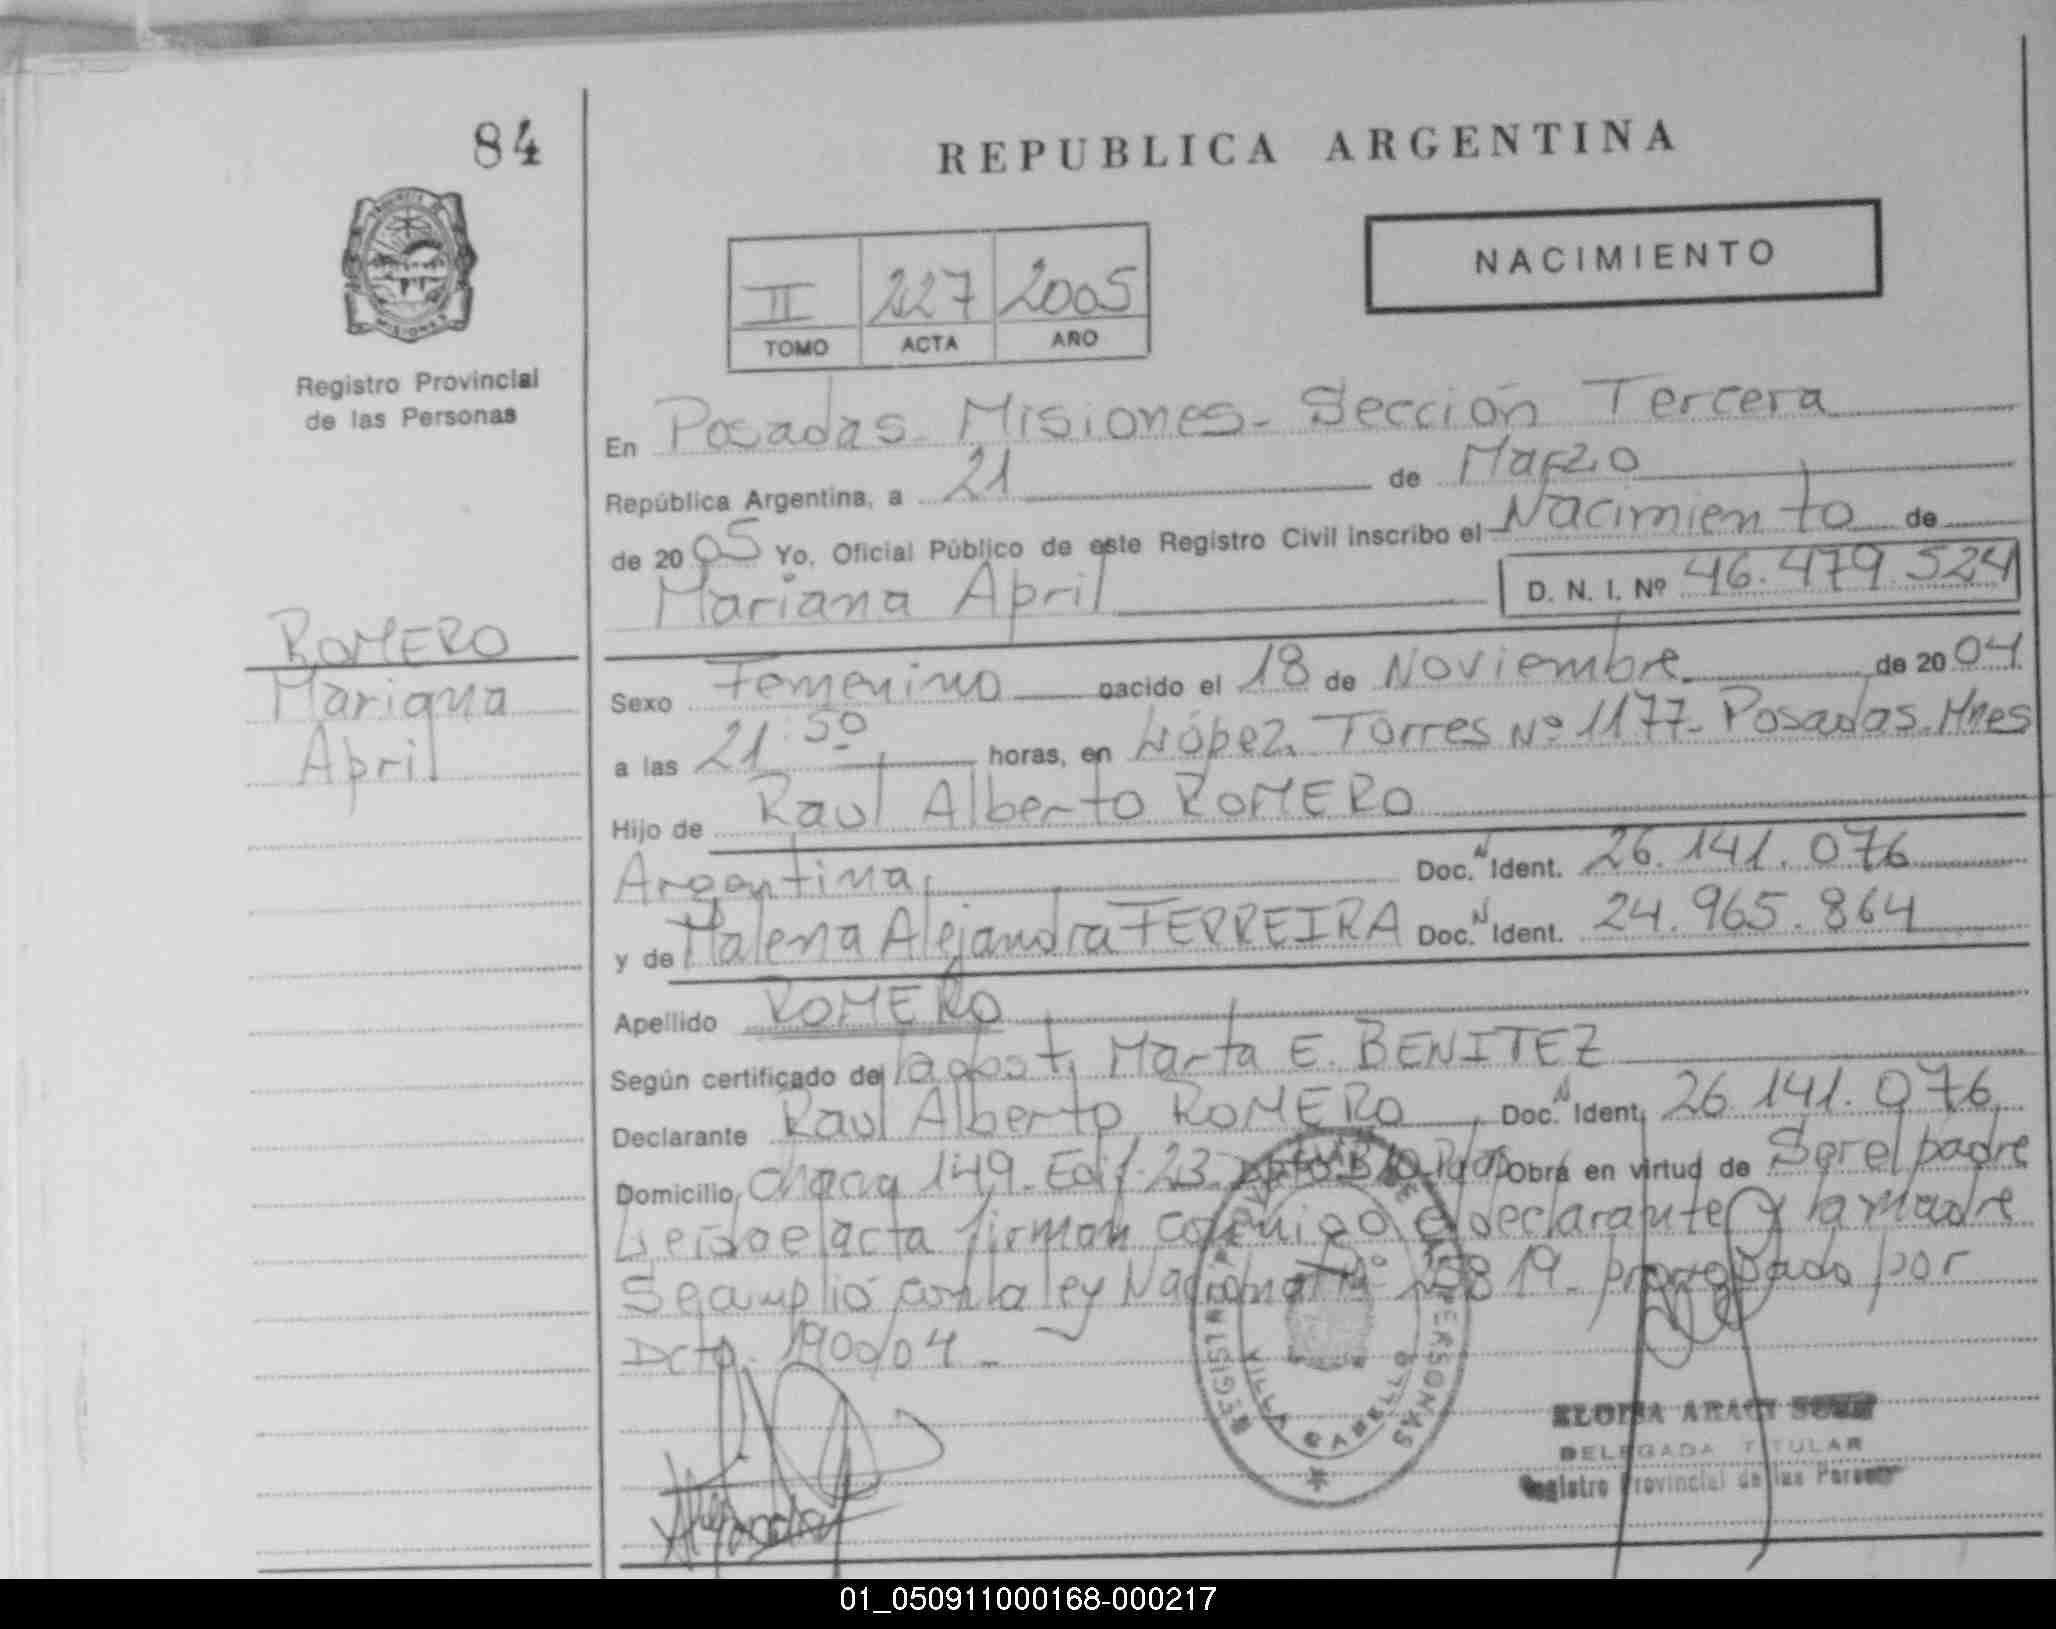 84
REPUBLICA ARGENTINA
NACIMIENTO
II 227 2005
TOMO ACTA AÑO
Registro Provincial
de las Personas
En Posadas Misiones - Sección Tercera
República Argentina, a 21 de Marzo
de 2005 Yo, Oficial Público de este Registro Civil inscribo el Nacimiento de
Mariana April D. N. I. Nº 46.479.524
ROMERO
Mariana
April
Sexo Femenino nacido el 18 de Noviembre de 2004
a las 21:50 horas, en López Torres Nº 1177 - Posadas. Mnes
Hijo de Raul Alberto ROMERO
Argentina Doc. N Ident. 26.141.076
y de Malena Alejandra FERREIRA Doc. N Ident. 24.965.864
Apellido ROMERO
Según certificado de la obst. Marta E. BENITEZ
Declarante Raul Alberto ROMERO Doc. N Ident. 26.141.076
Domicilio Chacra 149. Edif. 23. Obra en virtud de Ser el padre
Leída el acta firman conmigo el declarante y la madre
Se amplió con la ley Nacional Nº 25819 - prorrogado por
Dcto. 1900/04 -
REGISTRO PROVINCIAL DE LAS PERSONAS
VILLA CABELLO
ELOISA ARACY
DELEGADA TITULAR
Registro Provincial de las Personas
Alejandra
01_050911000168-000217